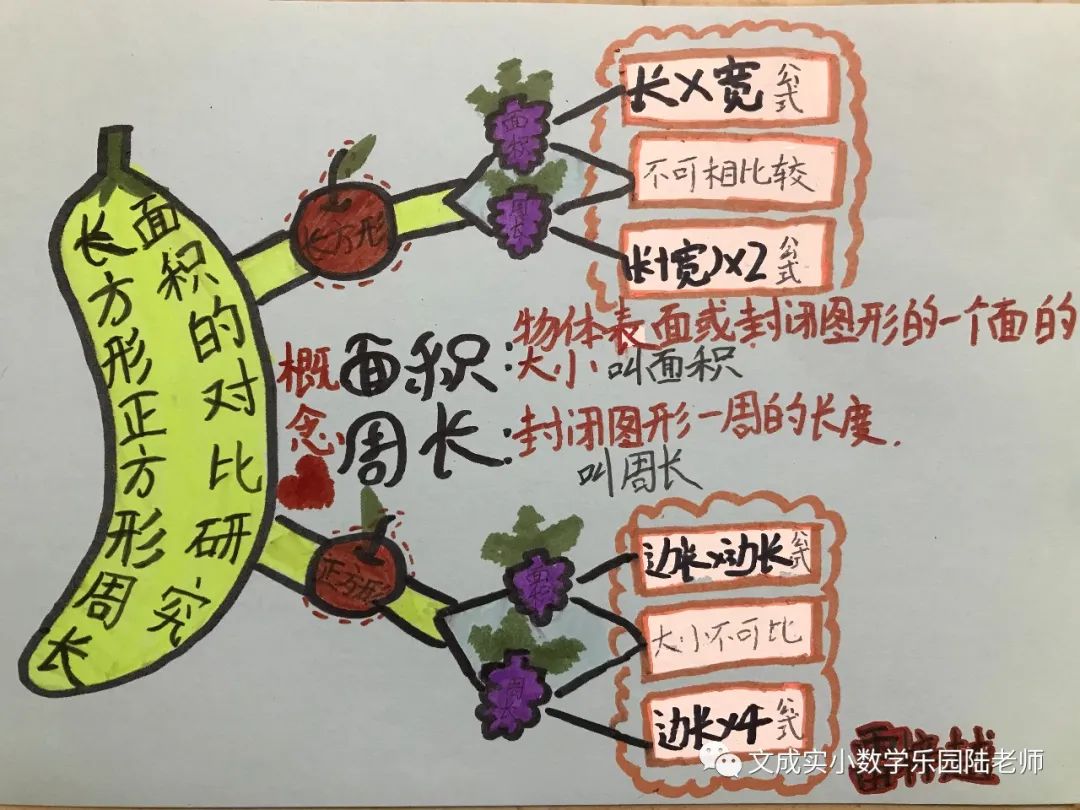 长方形正方形周长
面积的对比研究
长方形
面积
周长
长×宽 公式
不可相比较
(长+宽)×2 公式
概念
面积:物体表面或封闭图形的一个面的
大小叫面积
周长:封闭图形一周的长度.
叫周长
正方形
面积
周长
边长×边长 公式
大小不可比
边长×4 公式
文成实小数学乐园陆老师